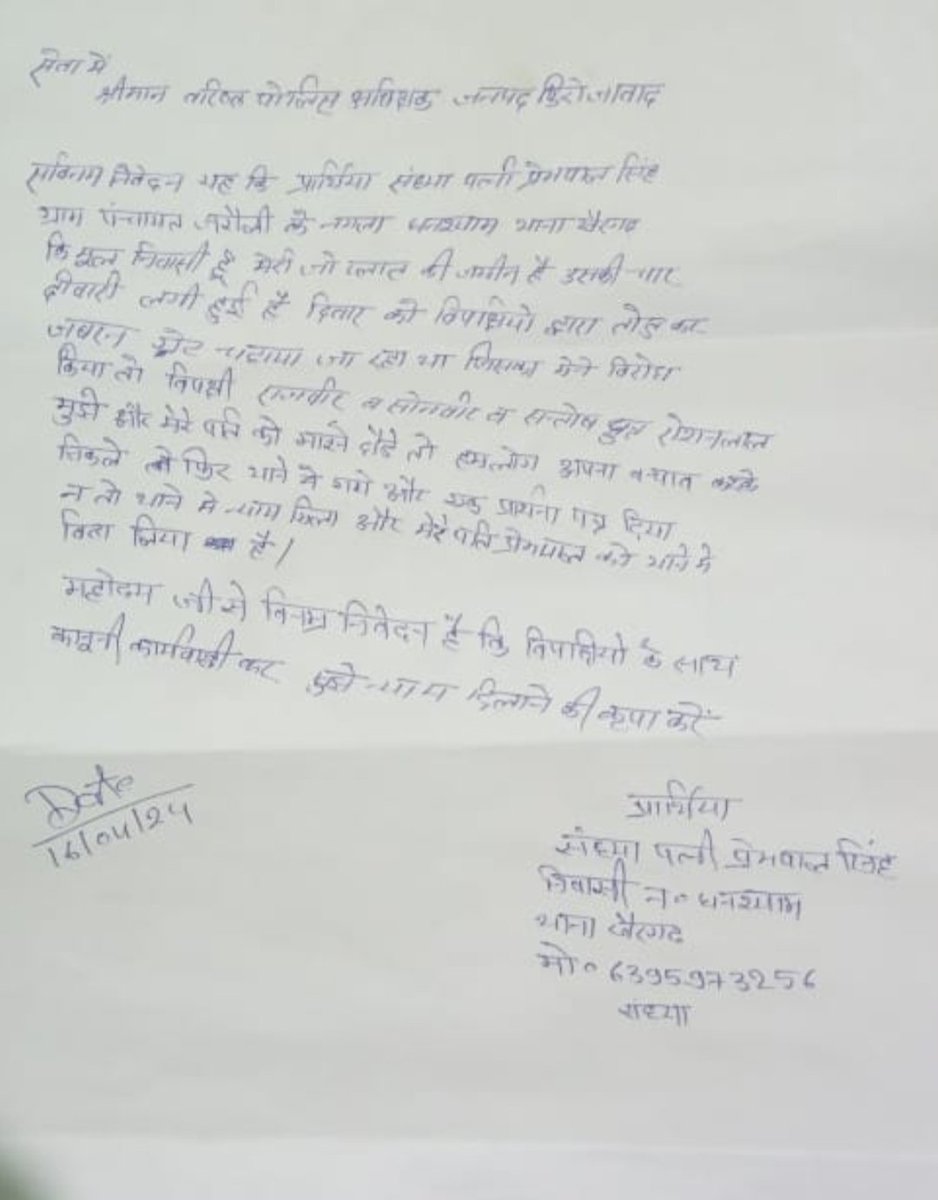 सेवा में
श्रीमान वरिष्ठ पोलिस अधिक्षक जनपद फिरोजावाद
सविनय निवेदन यह कि प्रार्थिया संध्या पत्नी प्रेमपाल सिंह
ग्राम पंचायत जरौली के नगला घनश्याम थाना खैरगढ
कि मूल निवासी हूँ मेरी जो प्लाट की जमीन है उसकी चार
दीवारी लगी हुई है दिवार को विपक्षियो द्वारा तोड़ कर
जबरन गेट चढाया जा रहा था जिसका मेने विरोध
किया तो विपक्षी राजवीर व सोनवीर व सन्तोष पुत्र रोशनलाल
मुझे और मेरे पति को मारने दौडे तो हमलोग अपना बचाव करके
निकले तो फिर थाने मे गये और एक प्रार्थना पत्र दिया
न तो थाने मे न्याय मिला और मेरे पति प्रेमपाल को थाने मे
बिठा लिया है।
महोदय जी से विनम्र निवेदन है कि विपक्षियो के साथ
कानूनी कार्यवाही कर मुझे न्याय दिलाने की कृपा करें
Date
16/04/24
प्रार्थिया
संध्या पत्नी प्रेमपाल सिंह
निवासी न० घनश्याम
थाना खैरगढ
मो० 6395973256
संध्या